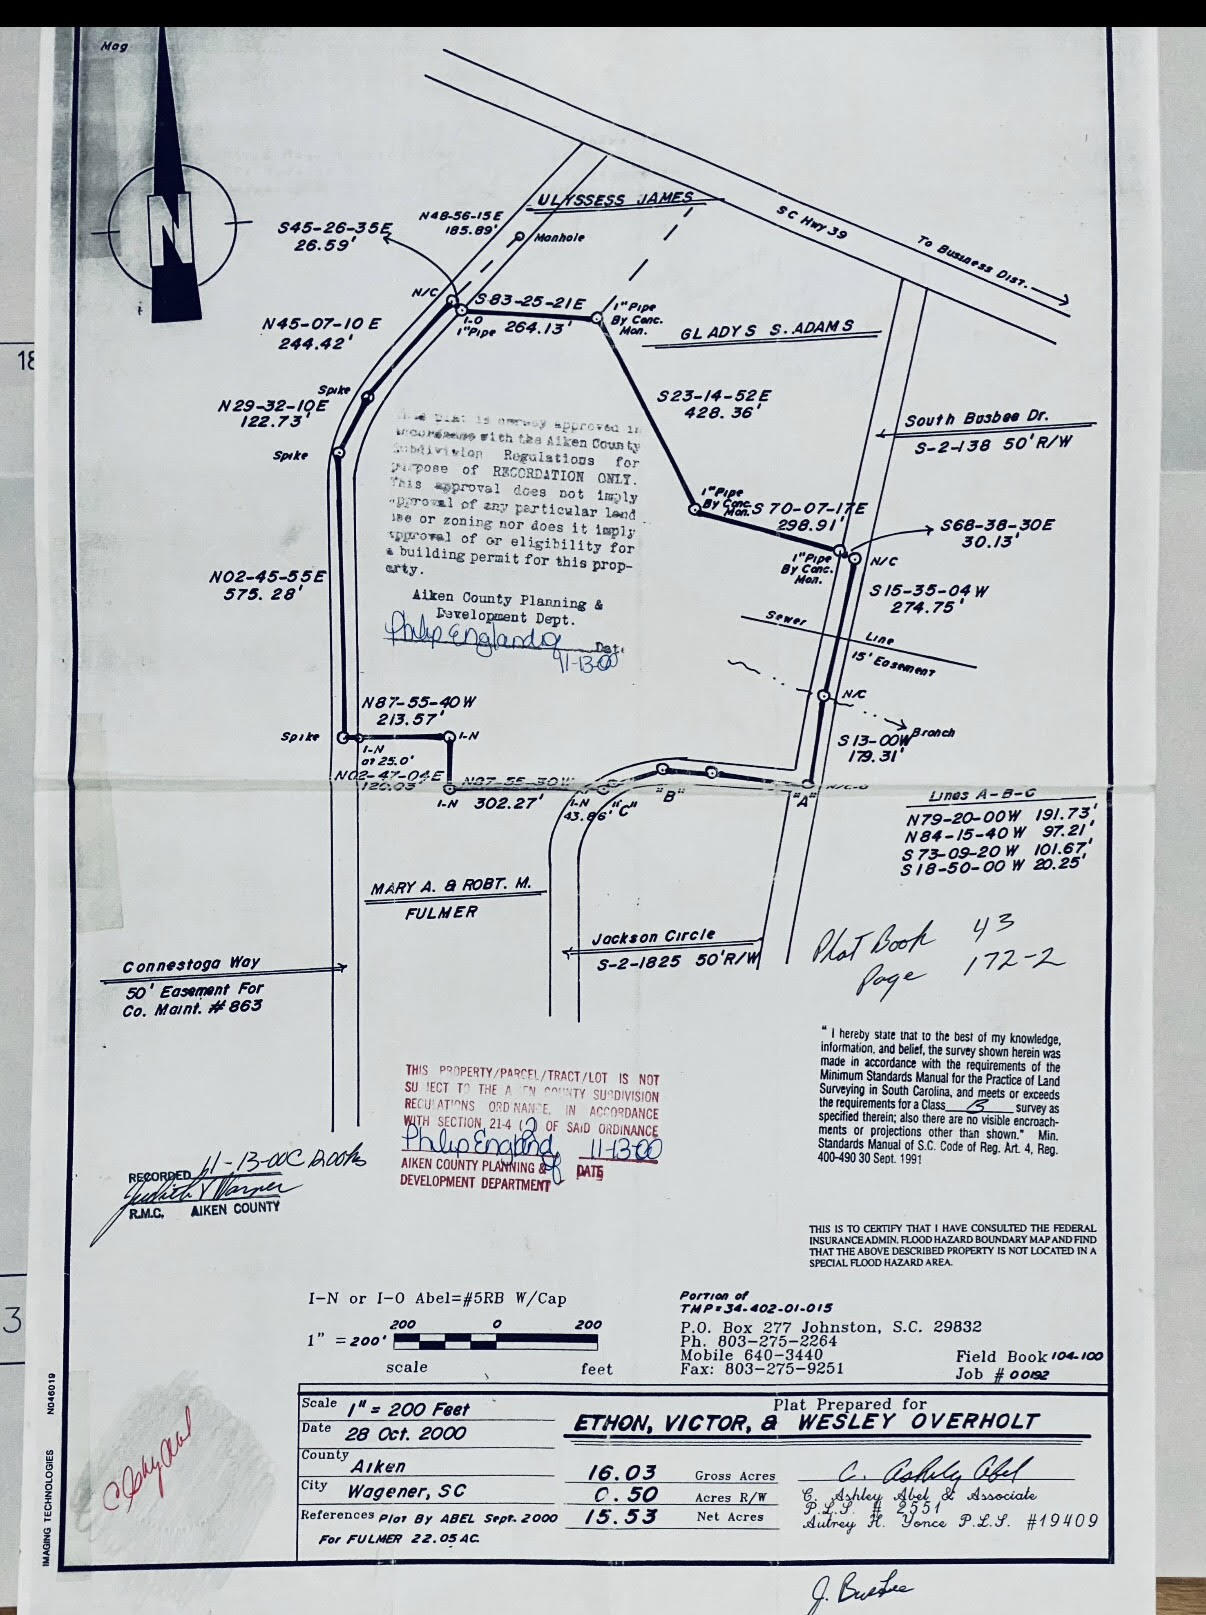 Mag
N
ULYSSESS JAMES
N48-56-15E
185.89'
Manhole
S45-26-35E
26.59'
SC Hwy 39
To Business Dist.
N/C
S 83-25-21E
264.13'
I-O
1"Pipe
1"Pipe
By Conc.
Mon.
GLADYS S. ADAMS
N45-07-10 E
244.42'
Spike
N29-32-10E
122.73'
Spike
S23-14-52E
428.36'
South Busbee Dr.
S-2-138 50'R/W
This plat is hereby approved in
accordance with the Aiken County
Subdivision Regulations for
purpose of RECORDATION ONLY.
This approval does not imply
approval of any particular land
use or zoning nor does it imply
approval of or eligibility for
a building permit for this prop-
erty.
Aiken County Planning &
Development Dept.
Philip England
Date
11-13-00
1"Pipe
By Conc.
Mon.
S 70-07-17E
298.91'
S68-38-30E
30.13'
1"Pipe
By Conc.
Mon.
N/C
S 15-35-04 W
274.75'
N02-45-55E
575.28'
Sewer Line
15' Easement
N/C
Branch
S 13-00W
179.31'
N87-55-40W
213.57'
Spike
I-N
at 25.0'
I-N
N02-47-04E
120.03'
I-N
N87-55-30W
302.27'
I-N
43.86'
"C"
"B"
"A"
N/C-O
Lines A-B-C
N79-20-00W 191.73'
N84-15-40 W 97.21'
S 73-09-20 W 101.67'
S 18-50-00 W 20.25'
MARY A. & ROBT. M.
FULMER
Jackson Circle
S-2-1825 50'R/W
Plat Book 43
Page 172-2
Connestoga Way
50' Easement For
Co. Maint. # 863
" I hereby state that to the best of my knowledge,
information, and belief, the survey shown herein was
made in accordance with the requirements of the
Minimum Standards Manual for the Practice of Land
Surveying in South Carolina, and meets or exceeds
the requirements for a Class B survey as
specified therein; also there are no visible encroach-
ments or projections other than shown." Min.
Standards Manual of S.C. Code of Reg. Art. 4, Reg.
400-490 30 Sept. 1991
THIS PROPERTY/PARCEL/TRACT/LOT IS NOT
SUBJECT TO THE AIKEN COUNTY SUBDIVISION
REGULATIONS ORDINANCE, IN ACCORDANCE
WITH SECTION 21-4 (2) OF SAID ORDINANCE
Philip England 11-13-00
AIKEN COUNTY PLANNING & DATE
DEVELOPMENT DEPARTMENT
RECORDED 11-13-00
Judith V Warner
R.M.C. AIKEN COUNTY
THIS IS TO CERTIFY THAT I HAVE CONSULTED THE FEDERAL
INSURANCE ADMIN. FLOOD HAZARD BOUNDARY MAP AND FIND
THAT THE ABOVE DESCRIBED PROPERTY IS NOT LOCATED IN A
SPECIAL FLOOD HAZARD AREA.
I-N or I-O Abel=#5RB W/Cap
200 0 200
1" = 200'
scale feet
Portion of
TMP=34-402-01-015
P.O. Box 277 Johnston, S.C. 29832
Ph. 803-275-2264
Mobile 640-3440
Fax: 803-275-9251
Field Book 104-100
Job # 00192
Scale 1" = 200 Feet
Date 28 Oct. 2000
County Aiken
City Wagener, SC
References Plat By ABEL Sept. 2000
For FULMER 22.05 AC.
Plat Prepared for
ETHON, VICTOR, & WESLEY OVERHOLT
16.03 Gross Acres
0.50 Acres R/W
15.53 Net Acres
C. Ashley Abel
C. Ashley Abel & Associate
P.L.S. # 2551
Autrey H. Yonce P.L.S. #19409
C Ashley Abel
IMAGING TECHNOLOGIES N046019
18
3